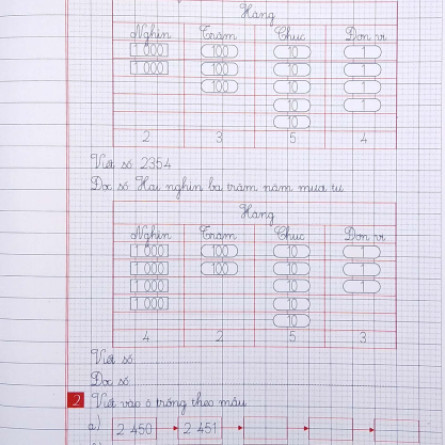 Hàng
Nghìn Trăm Chục Đơn vị
1 000 100 10 1
1 000 100 10 1
100 10 1
10 1
10
2 3 5 4
Viết số 2354
Đọc số Hai nghìn ba trăm năm mươi tư
Hàng
Nghìn Trăm Chục Đơn vị
1 000 100 10 1
1 000 100 10 1
1 000 10 1
1 000 10
10
4 2 5 3
Viết số
Đọc số
2 Viết vào ô trống theo mẫu
a) 2 450 2 451